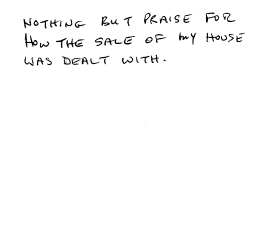 NOTHING BUT PRAISE FOR
HOW THE SALE OF MY HOUSE
WAS DEALT WITH.